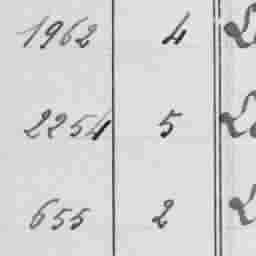 1962 4
2254 5
655 2